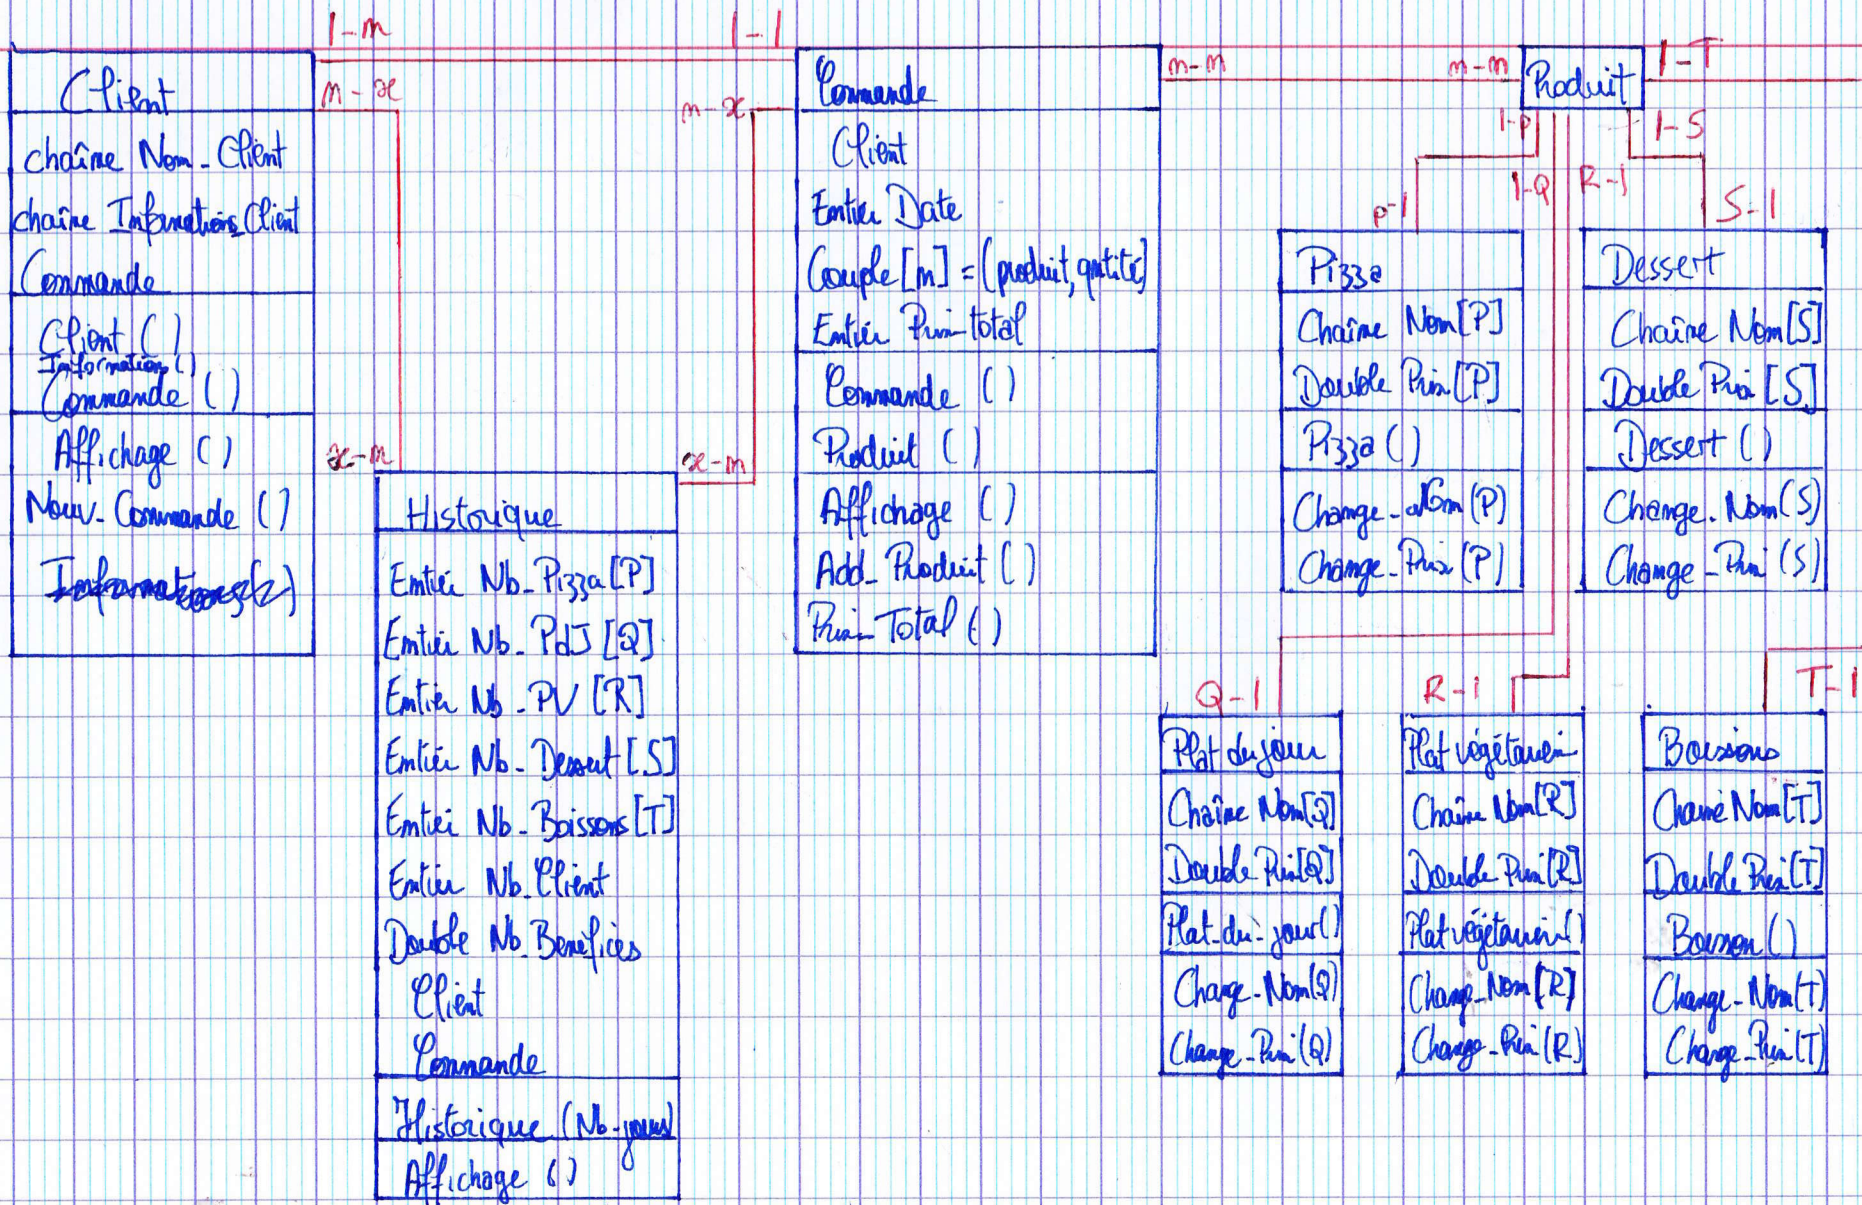 1-m
1-1
Client
m-x
chaîne Nom_Client
chaîne Informations_Client
Commande
Client ()
Informations ()
Commande ()
Affichage ()
Nouv_Commande ()
x-m
Historique
Entier Nb_Pizza [P]
Entier Nb_PdJ [Q]
Entier Nb_PV [R]
Entier Nb_Dessert [S]
Entier Nb_Boissons [T]
Entier Nb_Client
Double Nb_Benefices
Client
Commande
Historique (Nb_jours)
Affichage ()
m-x
x-m
Commande
Client
Entier Date
Couple [m] = (produit, qntité)
Entier Prix_total
Commande ()
Produit ()
Affichage ()
Add_Produit ()
Prix_Total ()
m-m
m-m
Produit
1-T
1-P
1-S
1-Q
R-1
P-1
S-1
Pizza
Chaîne Nom [P]
Double Prix [P]
Pizza ()
Change_Nom (P)
Change_Prix (P)
Dessert
Chaîne Nom [S]
Double Prix [S]
Dessert ()
Change_Nom (S)
Change_Prix (S)
Q-1
R-1
T-1
Plat du jour
Chaîne Nom [Q]
Double Prix [Q]
Plat_du_jour ()
Change_Nom (Q)
Change_Prix (Q)
Plat végétarien
Chaîne Nom [R]
Double Prix [R]
Plat végétarien ()
Change_Nom [R]
Change_Prix (R)
Boissons
Chaîne Nom [T]
Double Prix [T]
Boisson ()
Change_Nom (T)
Change_Prix (T)